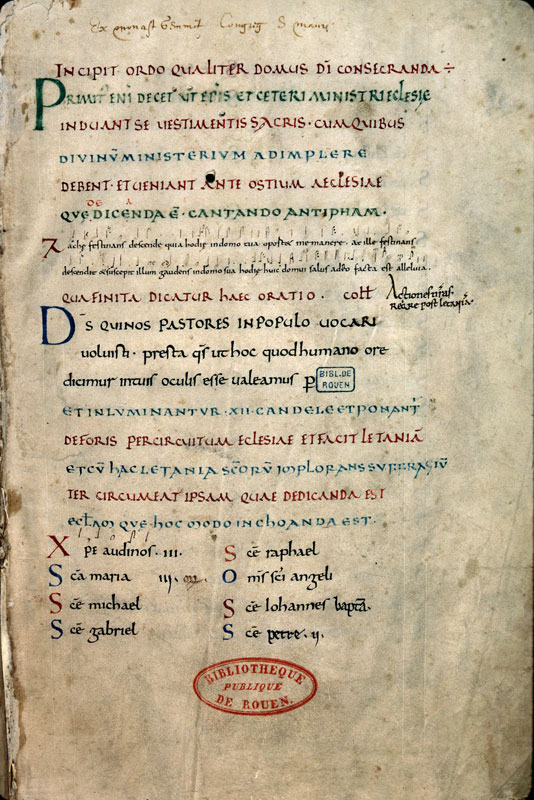 Ex monast Gemmit Congreg S mauri
INCIPIT ORDO QUALITER DOMUS DĪ CONSECRANDA÷
PRIMIT ENĪ DECET UT EPIS ET CETERI MINISTRI ECLESIE
INDUANT SE UESTIMENTIS SACRIS · CUM QUIBUS
DIVINŪ MINISTERIUM ADIMPLERE
DEBENT · ET UENIANT ANTE OSTIUM AECLESIAE
QUĘ DICENDA Ē · CANTANDO ANTIPHAM ·
DE A
Zache festinans descende quia hodie indomo tua oportet me manere · at ille festinans
descendit & suscepit illum gaudens indomo sua hodie huic domui salus adeo facta est alleluia ·
QUA FINITA DICATUR HAEC ORATIO · coll
Actiones nras ·
REQRE post letaniā ·
DS QUI NOS PASTORES IN POPULO UOCARI
uoluisti · presta qs ut hoc quod humano ore
dicimur intuis oculis esse ualeamus p
BIBL. DE
ROUEN
ET INLUMINANTUR · XII · CANDELE ET PONANT
DEFORIS PER CIRCUITUM ECLESIAE ET FACIT LETANIĀ
ET CŪ HAC LETANIA SCORŪ IMPLORANS SUFFRAGIŪ
TER CIRCUMEAT IPSAM QUAE DEDICANDA EST
ECLAM QUE HOC MODO INCHOANDA EST ·
Xpe audi nos · III ·
Scā maria III ·
Scē michael
Scē gabriel
Scē raphael
Om̄s sc̄i angeli
Scē Iohannes baptā ·
Scē petre · II ·
BIBLIOTHEQUE
PUBLIQUE
DE ROUEN.